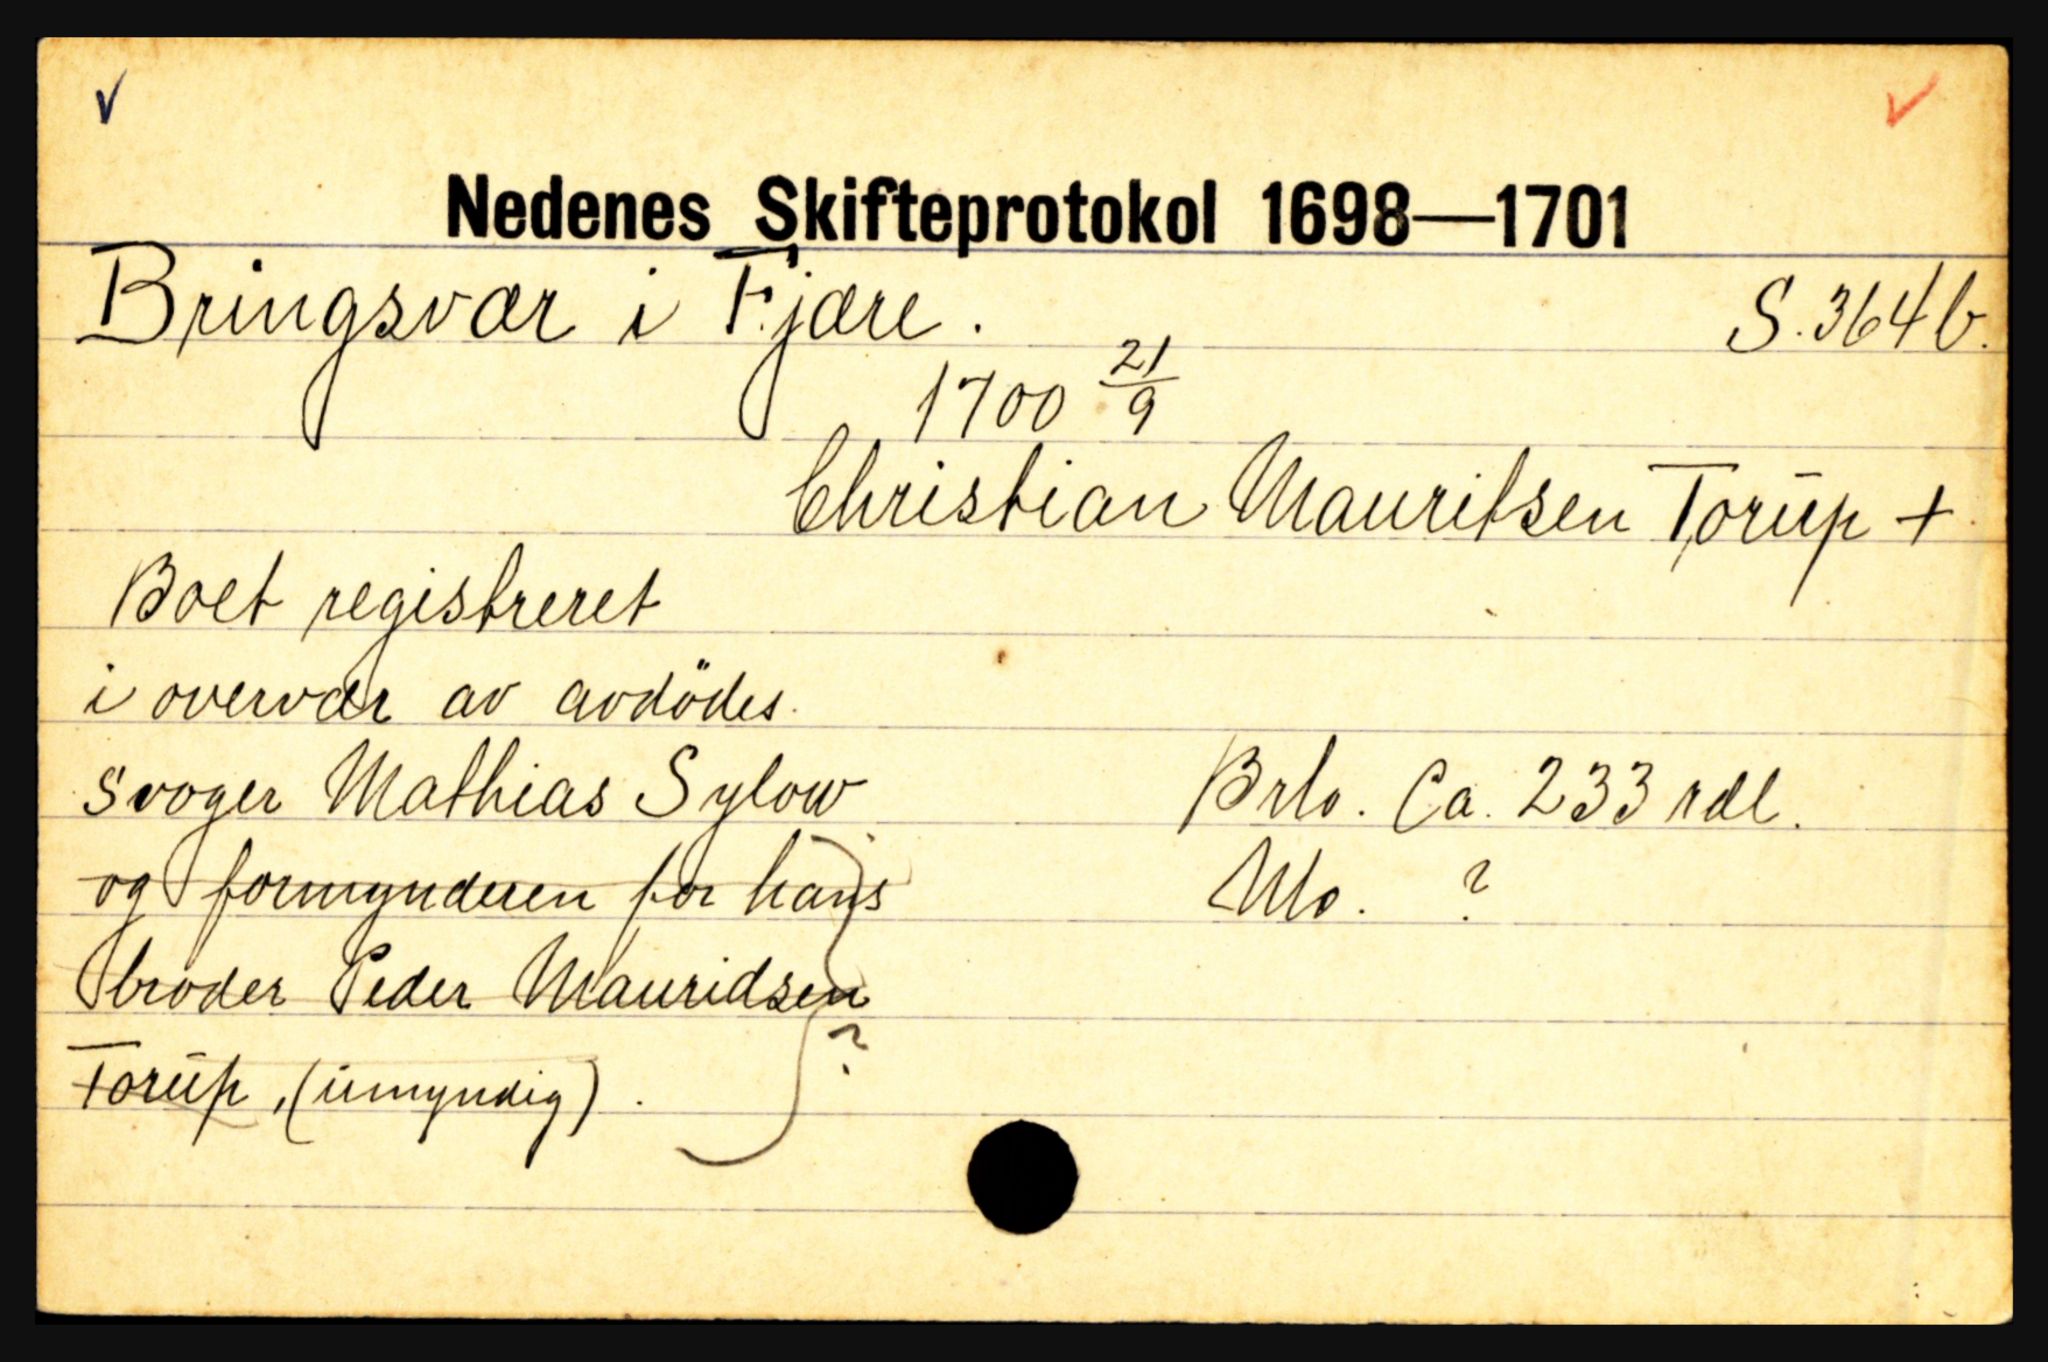 Nedenes Skifteprotokol 1698—1701
Bringsvær i Fjære. S. 364 b.
1700 21/9
Christian Mauritsen Torup +
Boet registreret
i overvær av avdödes
svoger Mathias Sylow Brto. Ca. 233 rdl.
og formynderen for hans Nto. ?
broder Peder Mauridsen
Torup, (umyndig). ?